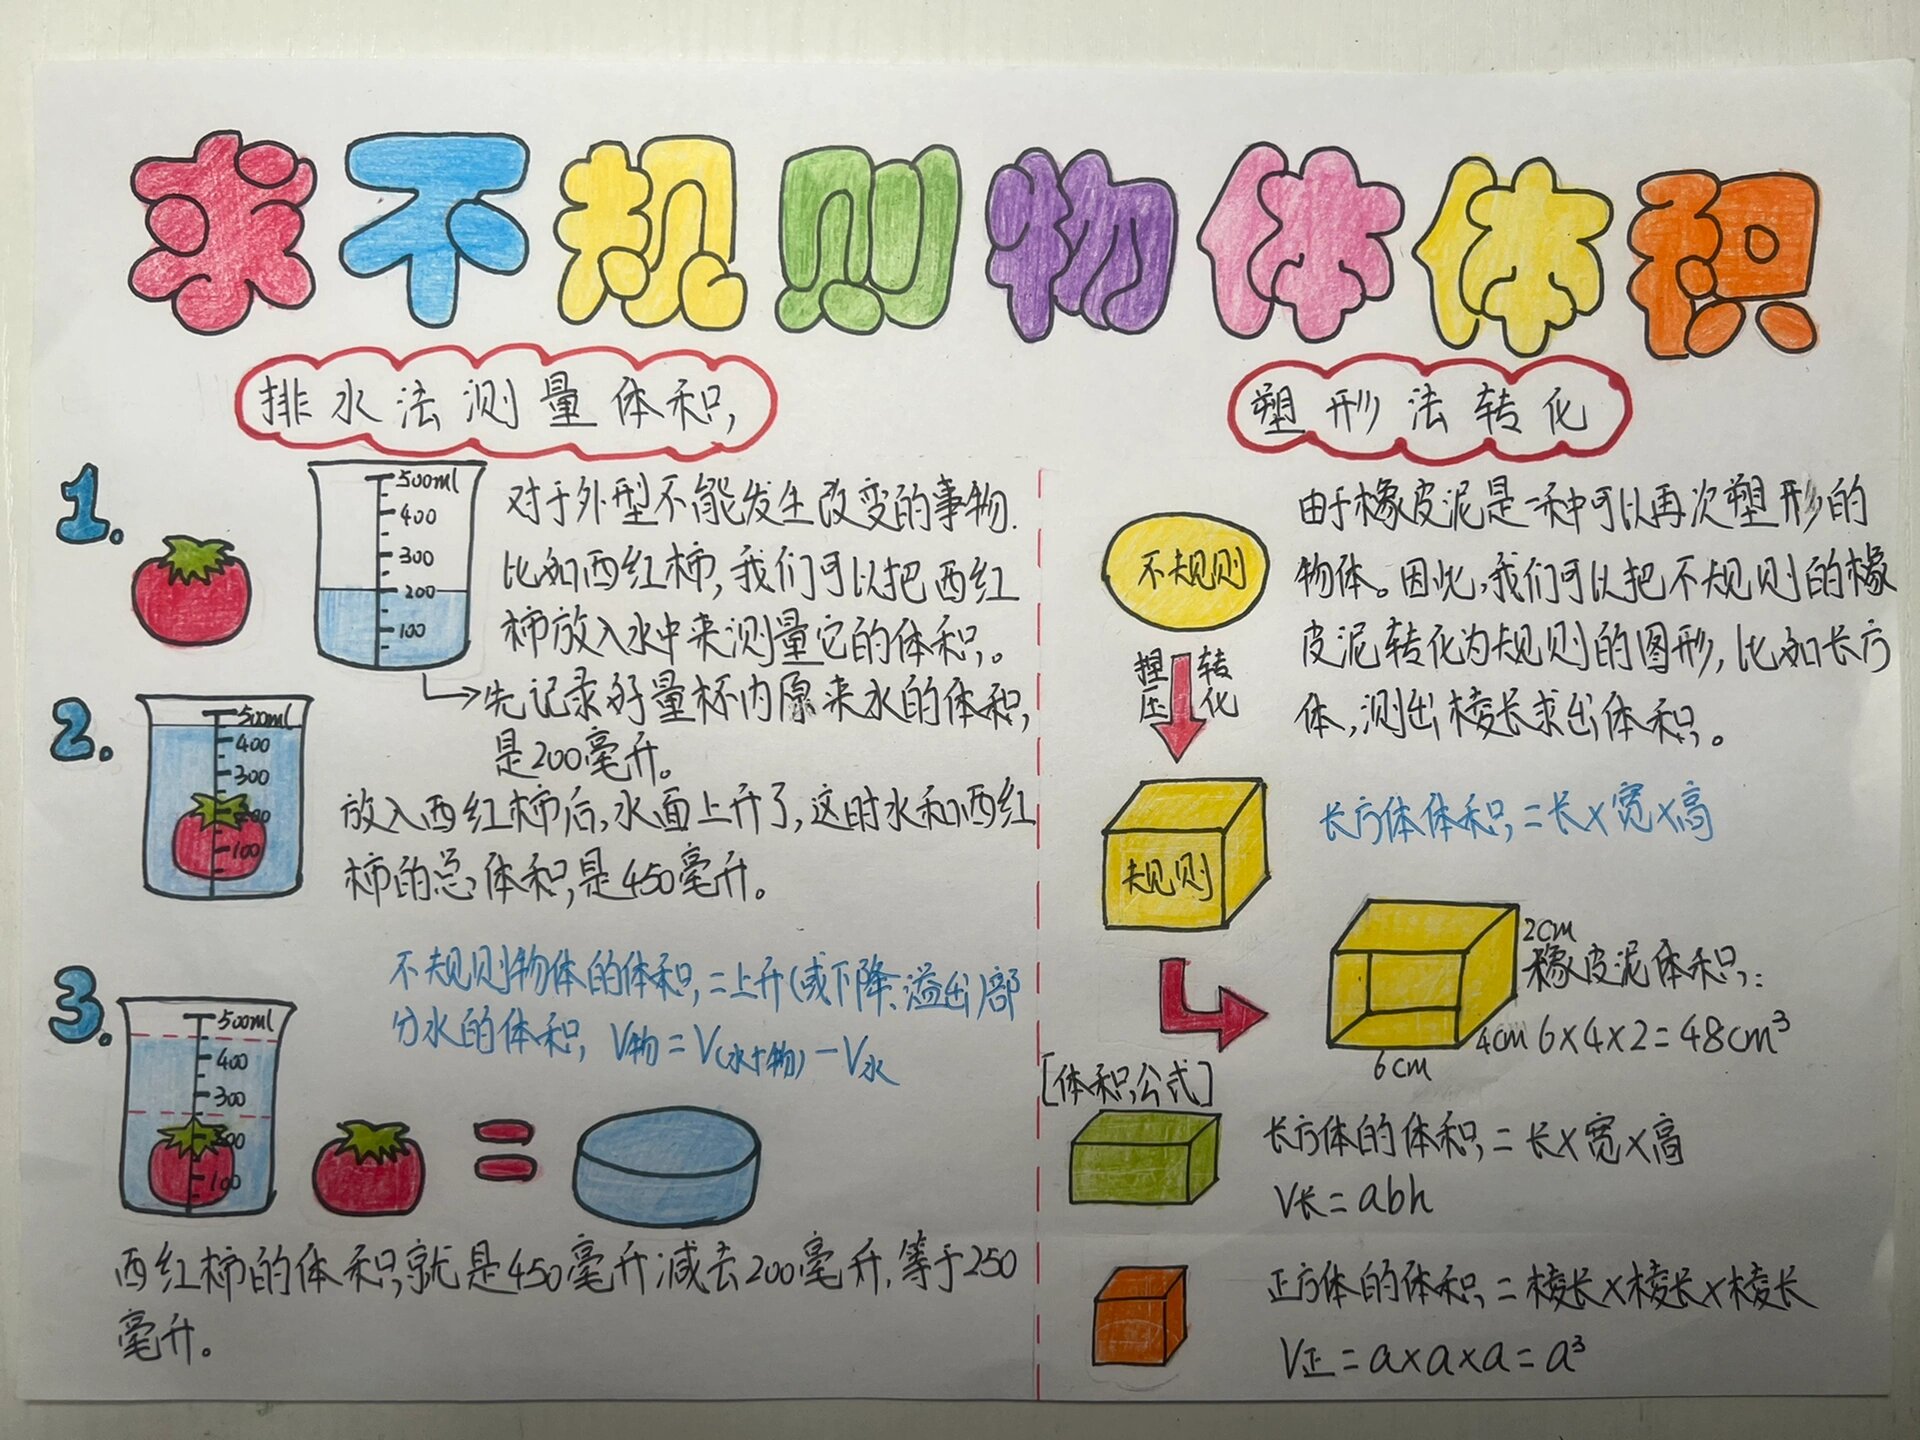 求不规则物体体积
排水法测量体积
1.
500ml
400
300
200
100
对于外型不能发生改变的事物.
比如西红柿,我们可以把西红
柿放入水中来测量它的体积。
先记录好量杯内原来水的体积,
是200毫升。
2.
500ml
400
300
200
100
放入西红柿后,水面上升了,这时水和西红
柿的总体积,是450毫升。
3.
500ml
400
300
200
100
不规则物体的体积=上升(或下降、溢出)部
分水的体积, V物=V(水+物)-V水
=
西红柿的体积,就是450毫升减去200毫升,等于250
毫升。
塑形法转化
由于橡皮泥是一种可以再次塑形的
物体。因此,我们可以把不规则的橡
皮泥转化为规则的图形,比如长方
体,测出棱长求出体积。
不规则
捏压
转化
规则
长方体体积=长×宽×高
2cm
4cm
6cm
橡皮泥体积:
6×4×2=48cm³
[体积公式]
长方体的体积=长×宽×高
V长=abh
正方体的体积=棱长×棱长×棱长
V正=a×a×a=a³